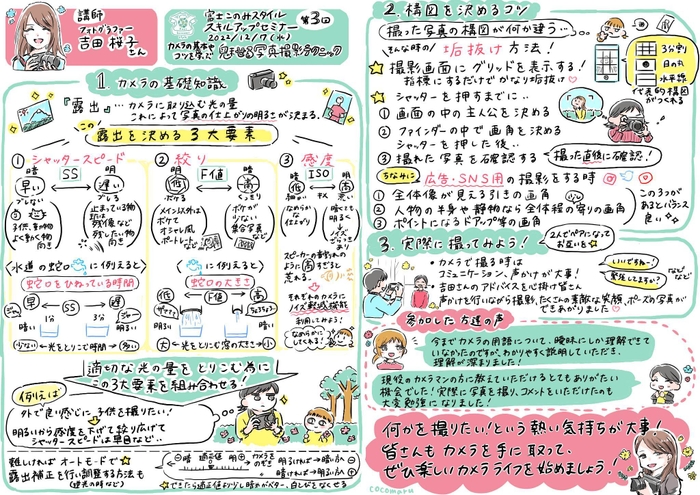 講師
フォトグラファー
吉田 桜子さん
富士このみスタイル
スキルアップセミナー
第3回
2022/12/7(水)
カメラの基本やコツを学んで 魅せる写真撮影テクニック
1. カメラの基礎知識
『露出』…カメラに取り込む光の量
これによって写真の仕上がりの明るさが決まる。
この
露出を決める3大要素
① シャッタースピード
暗 明
早い SS 遅い
ブレない ブレる
子供、動物
よく動く物
向き
止まっている物
または
残像など
残したい物
向き
② 絞り
明 暗
低 F値 高
ボケる くっきり
メイン以外は
ボケて
オシャレ風
ポートレートなど
ボケが
少ない
集合写真
など
③ 感度
暗 明
低 ISO 高
細かい キメ 荒い
なめらかな
仕上がり
暗くても
明るく
ノイズ
ざらつき
あり
スピーカーの音割れの
ように高すぎると
荒れる。
それぞれのカメラに
ノイズ軽減機能
利用してみよう!
なめらかに
してくれる!
水道の蛇口に例えると
蛇口をひねっている時間
早 SS 遅
1分 3分
暗い 明るい
少ない 光をとりこむ時間 多い
に例えると
蛇口の大きさ
低 F値 高
明るい 暗い
大 光をとりこむ窓の大きさ 小
適切な光の量をとりこむ為に
この3大要素を組み合わせる!
例えば
外で良い感じに子供を撮りたい!
明るいから感度を下げて絞り広げて
シャッタースピードは早目など…
難しければオートモードで
露出補正を行い調整する方法も
(逆光の時など)
⊖暗 適正値 明⊕
カメラを
のぞき
明るければ→暗い方へ
暗ければ→明るい方へ
できたら適正値より少し暗めがベター、白とびをなくせる
2. 構図を決めるコツ
撮った写真の構図が何か違う…
そんな時の 垢抜け方法!
撮影画面にグリッドを表示する!
指標にするだけでかなり垢抜け
3分割
日の丸
水平線
などで代表的な構図
がつくれる
シャッターを押すまでに…
① 画面の中の主人公を決める
② ファインダーの中で画角を決める
シャッターを押した後‥
③ 撮れた写真を確認する
撮った直後に確認!
ちなみに 広告・SNS用の撮影をする時
① 全体像が見える引きの画角
② 人物の半身や静物なら全体程の寄りの画角
③ ポイントになるドアップ等の画角
この3つが
あると
バランス
良い
3. 実際に撮ってみよう!
2人でペアになって
お互いを
カメラで撮る時は
コミュニケーション、声かけが大事!
いいですねー!
緊張してますか?
などなど
吉田さんのアドバイスを心掛け皆さん
声かけを行いながら撮影、たくさんの素敵な笑顔、ポーズの写真が
できあがりました
参加した方達の声
今までカメラの用語について、曖昧にしか理解できて
いなかったのですが、わかりやすく説明していただき、
理解が深まりました!
現役のカメラマンの方に教えていただけるとてもありがたい
機会でした!実際に写真を撮り、コメントをいただけたのも
大変勉強になりました!
何かを撮りたい!という熱い気持ちが大事!
皆さんもカメラを手に取って、
ぜひ楽しいカメラライフを始めましょう!
cocomaru